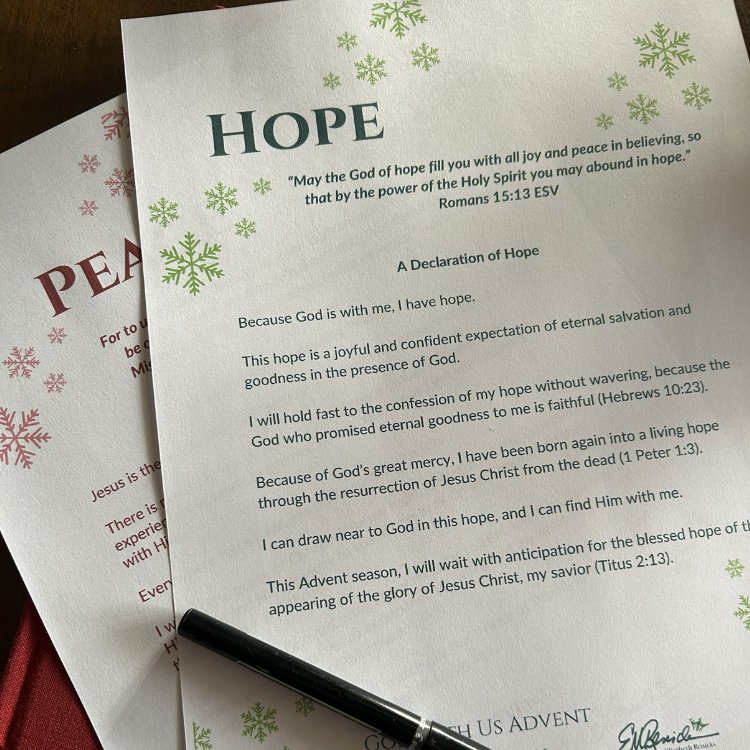 HOPE
"May the God of hope fill you with all joy and peace in believing, so
that by the power of the Holy Spirit you may abound in hope."
Romans 15:13 ESV
A Declaration of Hope
Because God is with me, I have hope.
This hope is a joyful and confident expectation of eternal salvation and
goodness in the presence of God.
I will hold fast to the confession of my hope without wavering, because the
God who promised eternal goodness to me is faithful (Hebrews 10:23).
Because of God's great mercy, I have been born again into a living hope
through the resurrection of Jesus Christ from the dead (1 Peter 1:3).
I can draw near to God in this hope, and I can find Him with me.
This Advent season, I will wait with anticipation for the blessed hope of th
appearing of the glory of Jesus Christ, my savior (Titus 2:13).
US ADVENT
PEA
For to u
be c
Mis
Jesus is the
There is
experie
with Hi
Even
I w